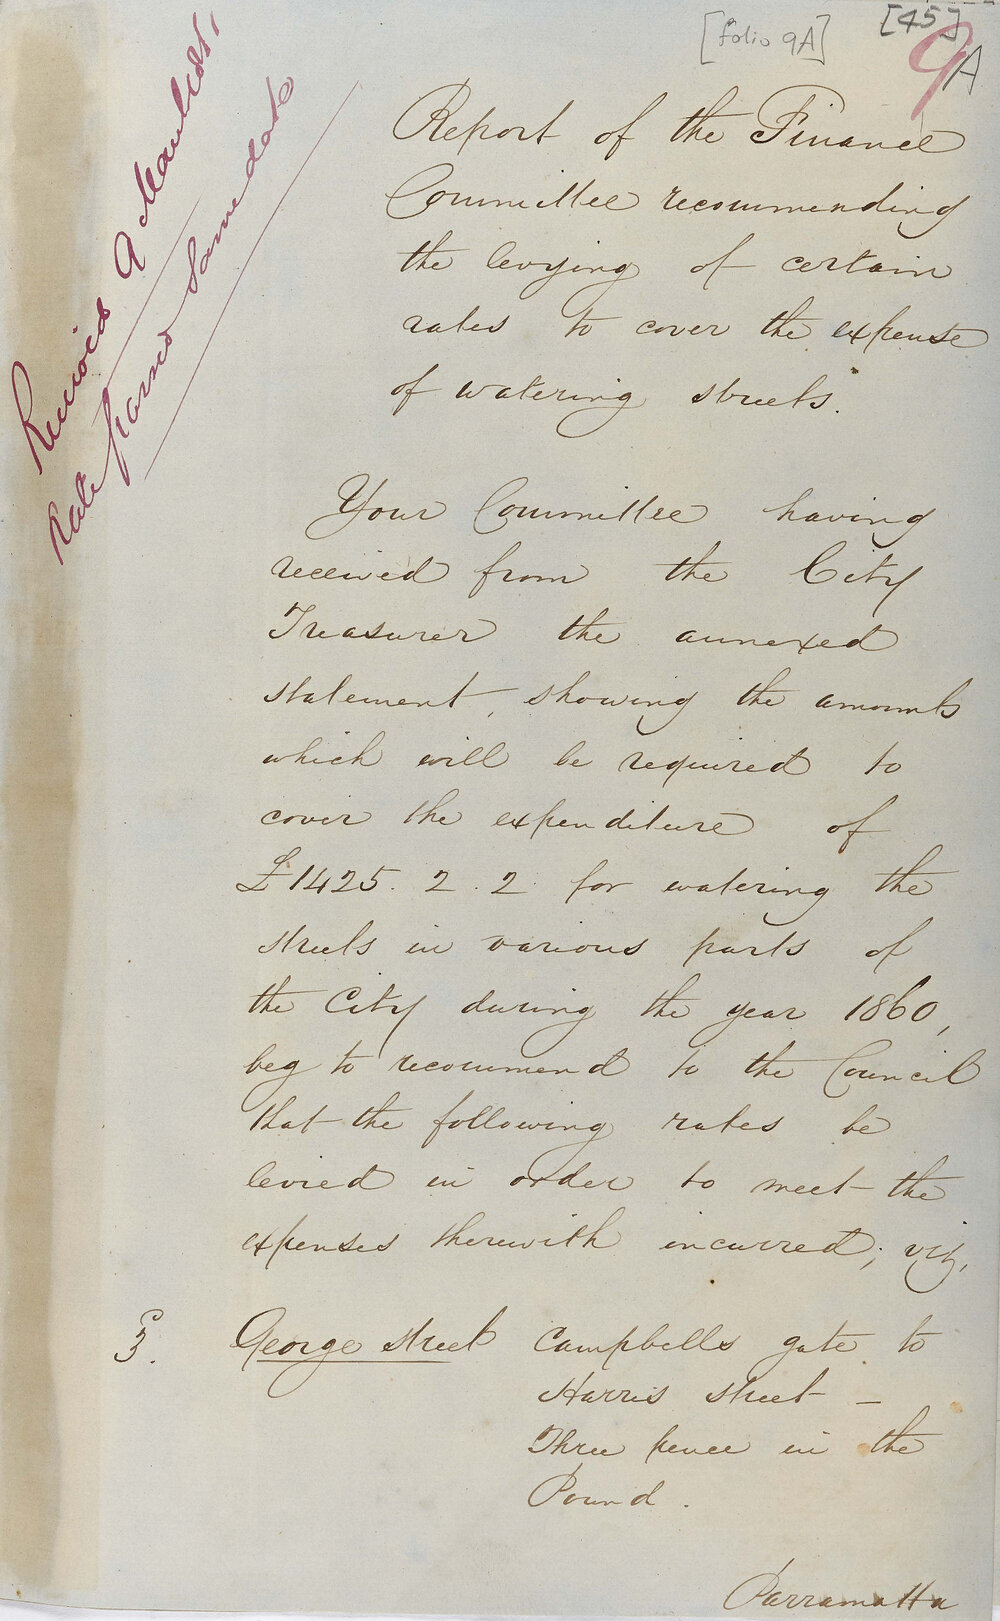 [45]
[folio 9A]
9A
Received 9 March 1861,
Rate passed Same date
Report of the Finance
Committee recommending
the levying of certain
rates to cover the expense
of watering streets.
Your Committee having
received from the City
Treasurer the annexed
statement, showing the amounts
which will be required to
cover the expenditure of
£1425. 2. 2 for watering the
streets in various parts of
the City during the year 1860,
beg to recommend to the Council
that the following rates be
levied in order to meet the
expenses therewith incurred; viz,
3.
George street Campbells gate to
Harris street —
Three pence in the
Pound.
Parramatta